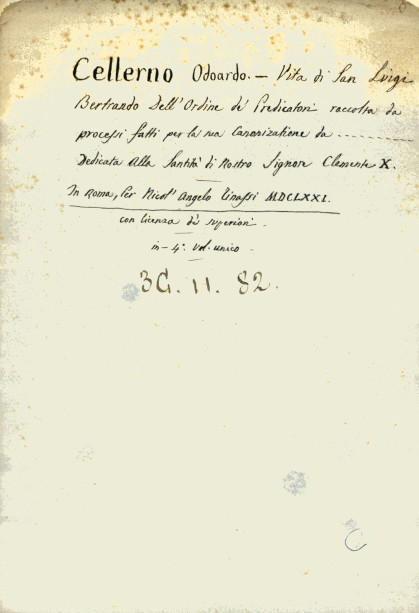 Cellerno Odoardo. — Vita di San Luigi
Bertrando Dell'Ordine de Predicatori raccolta da
processi fatti per la sua Canonizatione da ..........
Dedicata alla Santità di Nostro Signore Clemente X.
In Roma, Per Nicol' Angelo Tinassi MDCLXXI.
con Licenza de superiori.
in-4°. Vol. unico.
3G. 11. 82.